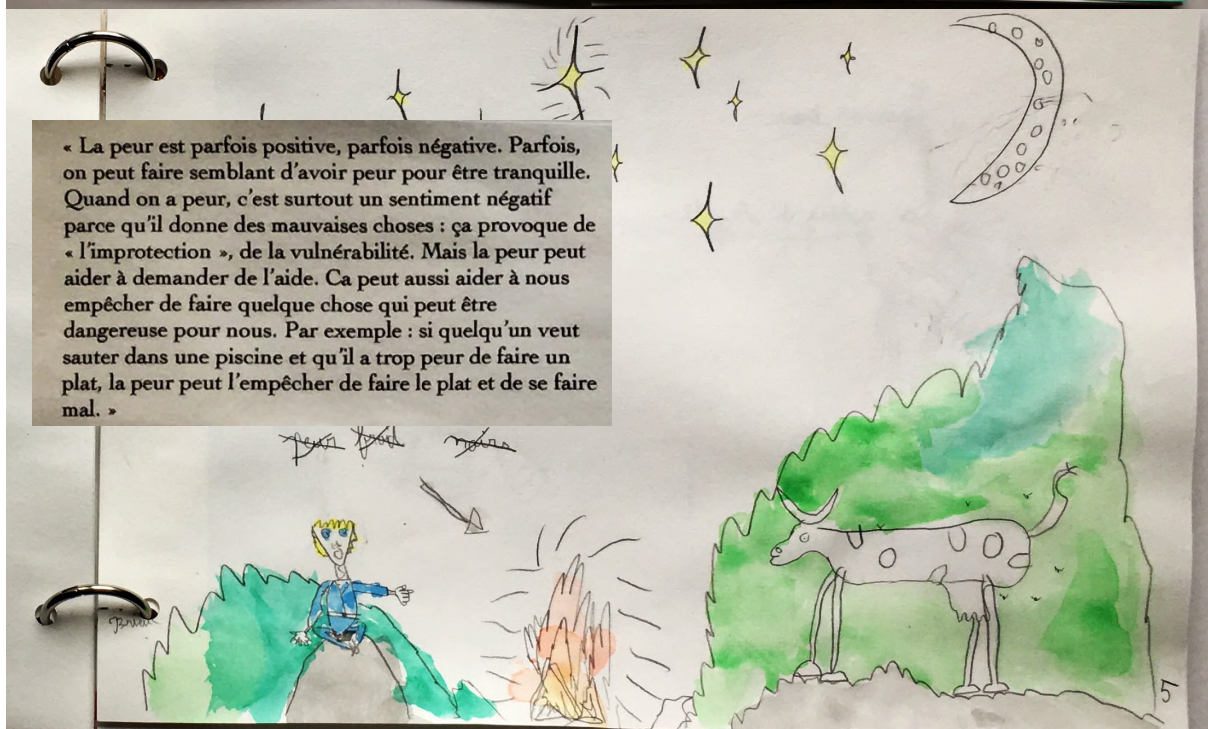 « La peur est parfois positive, parfois négative. Parfois,
on peut faire semblant d'avoir peur pour être tranquille.
Quand on a peur, c'est surtout un sentiment négatif
parce qu'il donne des mauvaises choses : ça provoque de
« l'improtection », de la vulnérabilité. Mais la peur peut
aider à demander de l'aide. Ca peut aussi aider à nous
empêcher de faire quelque chose qui peut être
dangereuse pour nous. Par exemple : si quelqu'un veut
sauter dans une piscine et qu'il a trop peur de faire un
plat, la peur peut l'empêcher de faire le plat et de se faire
mal. »
peur
5